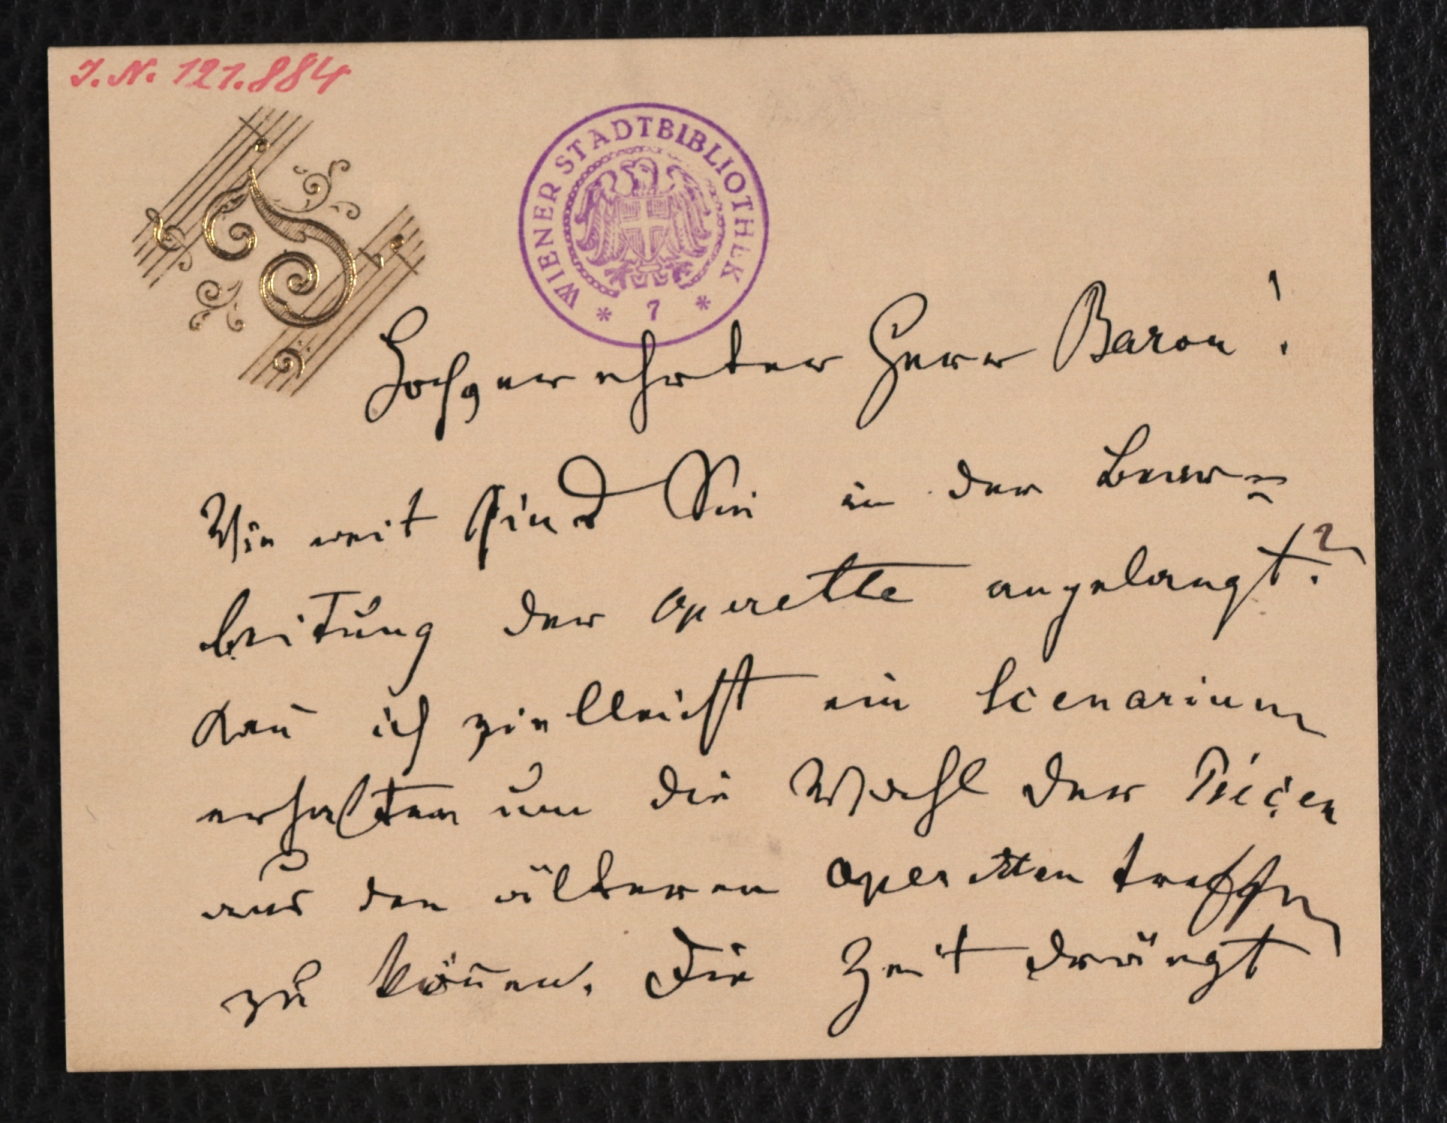 J. N. 121.884
WIENER STADTBIBLIOTHEK
* 7 *
Hochgeehrter Herr Baron!
Wie weit sind Sie in der Bear=
beitung der Operette angelangt?
Kan̄ ich vielleicht ein Scenarium
erhalten um die Wahl der Pieçen
aus den älteren Operetten treffen
zu kön̄en. Die Zeit drängt